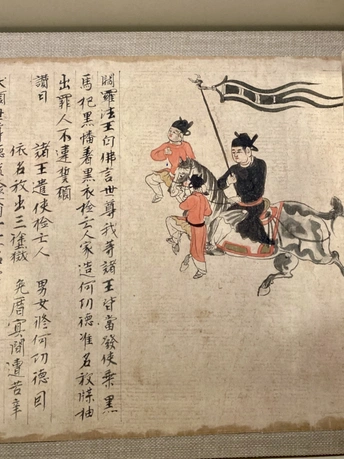 閻羅法王白佛言世尊我等諸王皆當發使乘黑
馬把黑幡著黑衣檢亡人家造何功德准名放牒抽
出罪人不違誓願
讚曰 諸王遣使檢亡人 男女修何功德因
依名放出三塗獄 免曆冥間遭苦辛
世尊